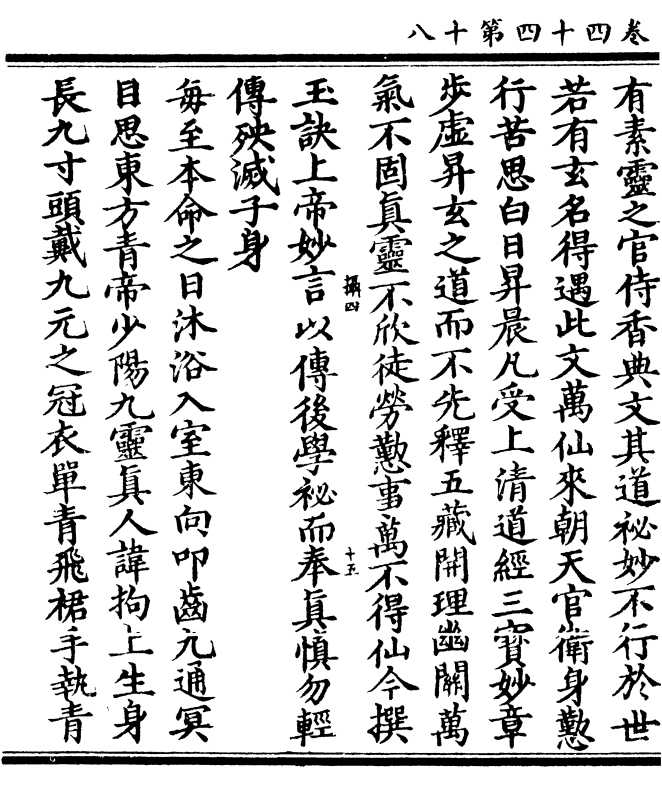 卷四十四第十八
有素靈之官侍香典文其道祕妙不行於世
若有玄名得遇此文萬仙來朝天官衛身懃
行苦思白日昇晨凡受上清道經三寶妙章
步虛昇玄之道而不先釋五藏開理幽關萬
氣不固真靈不欣徒勞懃事萬不得仙今撰
攝四
十五
玉訣上帝妙言以傳後學祕而奉真慎勿輕
傳殃滅子身
每至本命之日沐浴入室東向叩齒九通冥
目思東方青帝少陽九靈真人諱拘上生身
長九寸頭戴九元之冠衣單青飛裙手執青